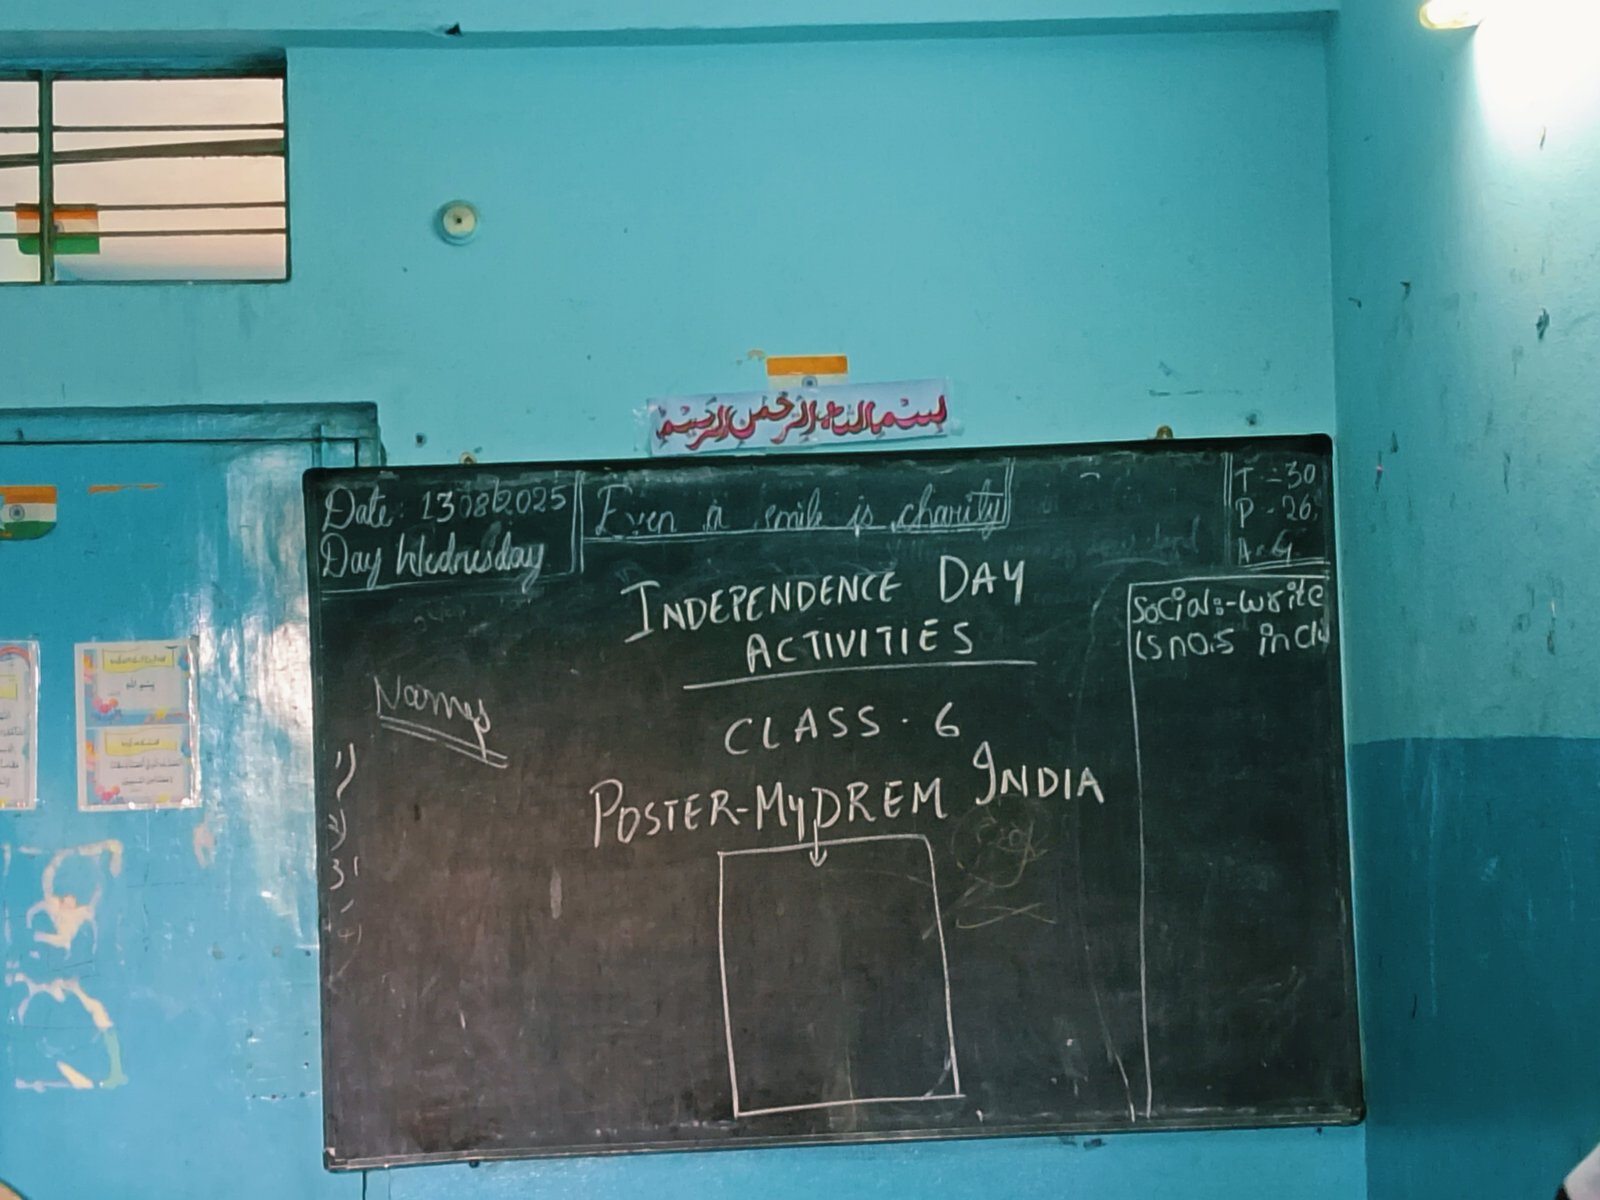 بسم الله الرحمن الرحيم
Date: 13/08/2025
Day Wednesday
Even a smile is charity
T = 30
P - 26
A - 4
INDEPENDENCE DAY
ACTIVITIES
CLASS - 6
POSTER-MyDREM INDIA
Names
1)
2)
3)
4)
Social:-write